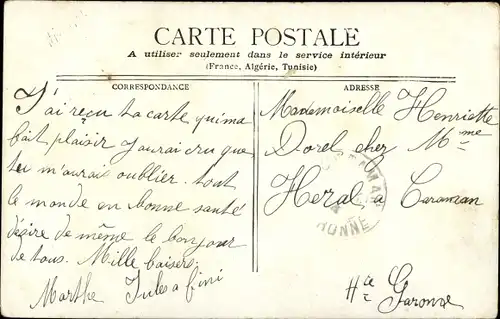 CARTE POSTALE
A utiliser seulement dans le service intérieur
(France, Algérie, Tunisie)
CORRESPONDANCE
J'ai reçu ta carte qui m'a
fait plaisir J'aurai cru que
tu m'aurais oublier. tout
le monde en bonne santé
désire de même le bonjour
de tous. Mille baisers.
Marthe Jules a fini
ADRESSE
Mademoiselle Henriette
Dorel chez Mme
Heral a Caraman
Hte Garonne